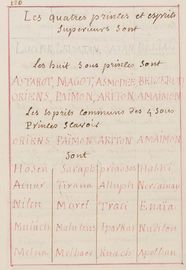 Les quatres princes et esprits
superieurs sont
LUCIFER LEVIATAN SATAN BELIAL
Les huit sous princes sont
ASTAROT, MAGOT, ASMODEE, BELZEBUD
ORIENS, PAIMON, ARITON, AMAIMON
Les Esprits communs des 4 sous
Princes Scavoir
ORIENS PAIMON, ARITON AMAIMON
sont
Hosen Saraph proxosos Habhi
Acuar Tirana Alluph Nercamay
Nilen Morel Traci Enaia
Mulach Malutens Iparkas Nuditon
Melna Melhaer Ruach Apolhun